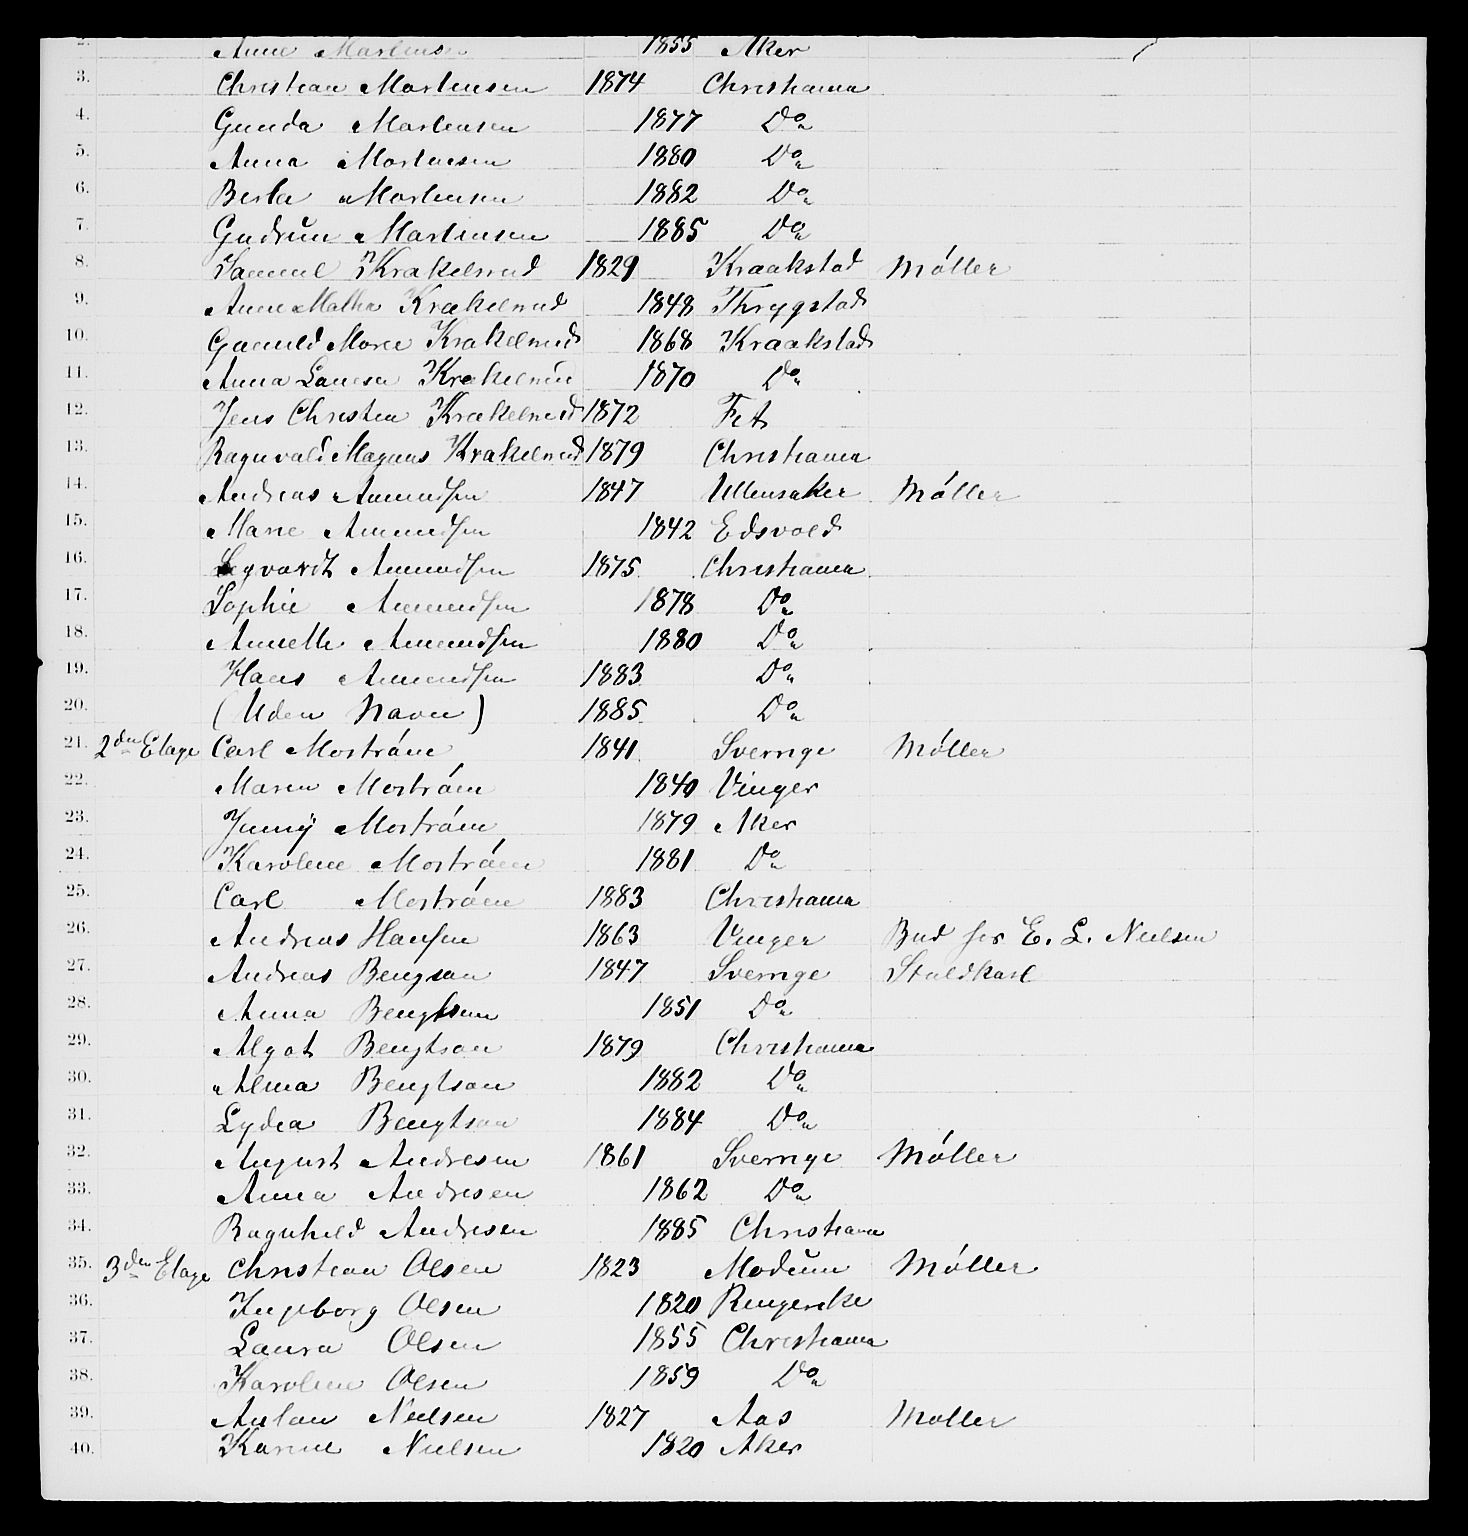 2. Anne Martensen 1855 Aker
3. Christian Martensen 1874 Christiania
4. Gunda Martensen 1877 Do
5. Anna Martensen 1880 Do
6. Berta Martensen 1882 Do
7. Gudrun Martensen 1885 Do
8. Samuel Krakelsrud 1829 Kraakstad Møller
9. Anne Mathea Krakelsrud 1848 Thrygstad
10. Gunild Marie Krakelsrud 1868 Kraakstad
11. Anna Lovisa Krakelsrud 1870 Do
12. Jens Christian Krakelsrud 1872 Fet
13. Ragnvald Magnus Krakelsrud 1879 Christiania
14. Andreas Amundsen 1847 Ullensaker Møller
15. Marie Amundsen 1842 Edsvold
16. Sigvardt Amundsen 1875 Christiania
17. Sophie Amundsen 1878 Do
18. Annette Amundsen 1880 Do
19. Hans Amundsen 1883 Do
20. (Uden Navn) 1885 Do
21. 2den Etage Carl Moström 1841 Sverrige Møller
22. Maren Moström 1840 Vinger
23. Jenny Moström 1879 Aker
24. Karoline Moström 1881 Do
25. Carl Moström 1883 Christiania
26. Andreas Hansen 1863 Vinger Bud for E. L. Nielsen
27. Andreas Bengtson 1847 Sverrige Staldkarl
28. Anna Bengtson 1851 Do
29. Algot Bengtson 1879 Christiania
30. Alma Bengtson 1882 Do
31. Lydia Bengtson 1884 Do
32. August Andresen 1861 Sverrige Møller
33. Anna Andresen 1862 Do
34. Ragnhild Andresen 1885 Christiania
35. 3den Etage Christian Olsen 1823 Modum Møller
36. Ingeborg Olsen 1820 Ringerike
37. Laura Olsen 1855 Christiania
38. Karoline Olsen 1859 Do
39. Anton Nielsen 1827 Aas Møller
40. Karine Nielsen 1820 Aker